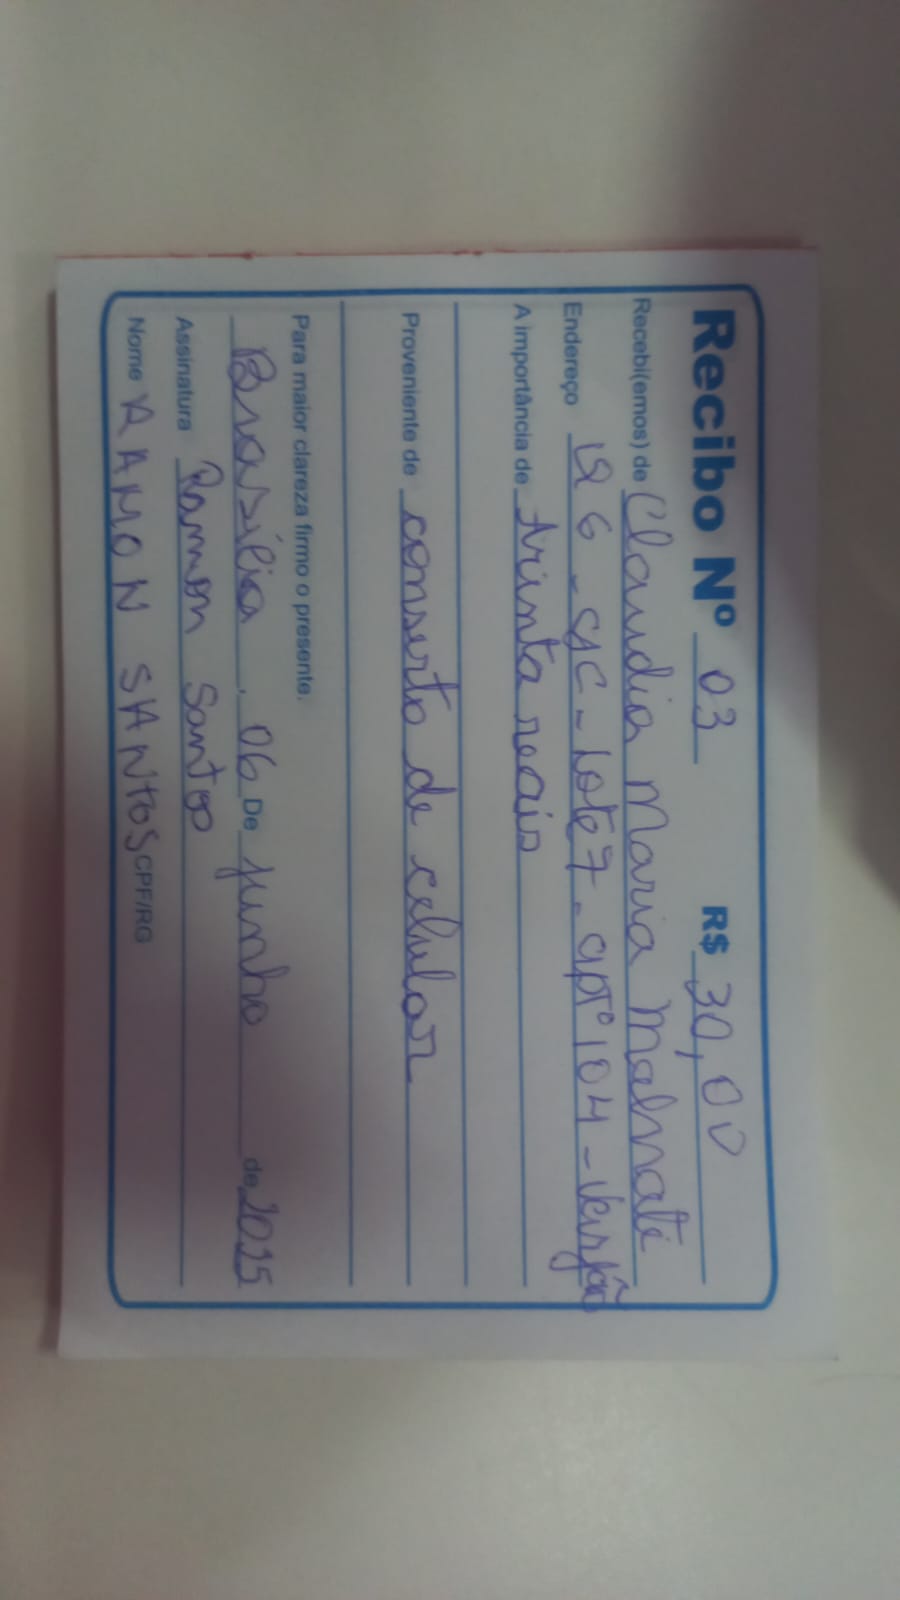 Recibo Nº 03 R$ 30,00
Recebi(emos) de Claudia Maria Malmati
Endereço Q 6 - cjc - Lote 7 - aptº 104 - Varjão
A importância de trinta reais
Proveniente de conserto de celular
Para maior clareza firmo o presente.
Brasília, 06 De junho de 2015
Assinatura Ramon Santos
Nome RAMON SANTOS CPF/RG